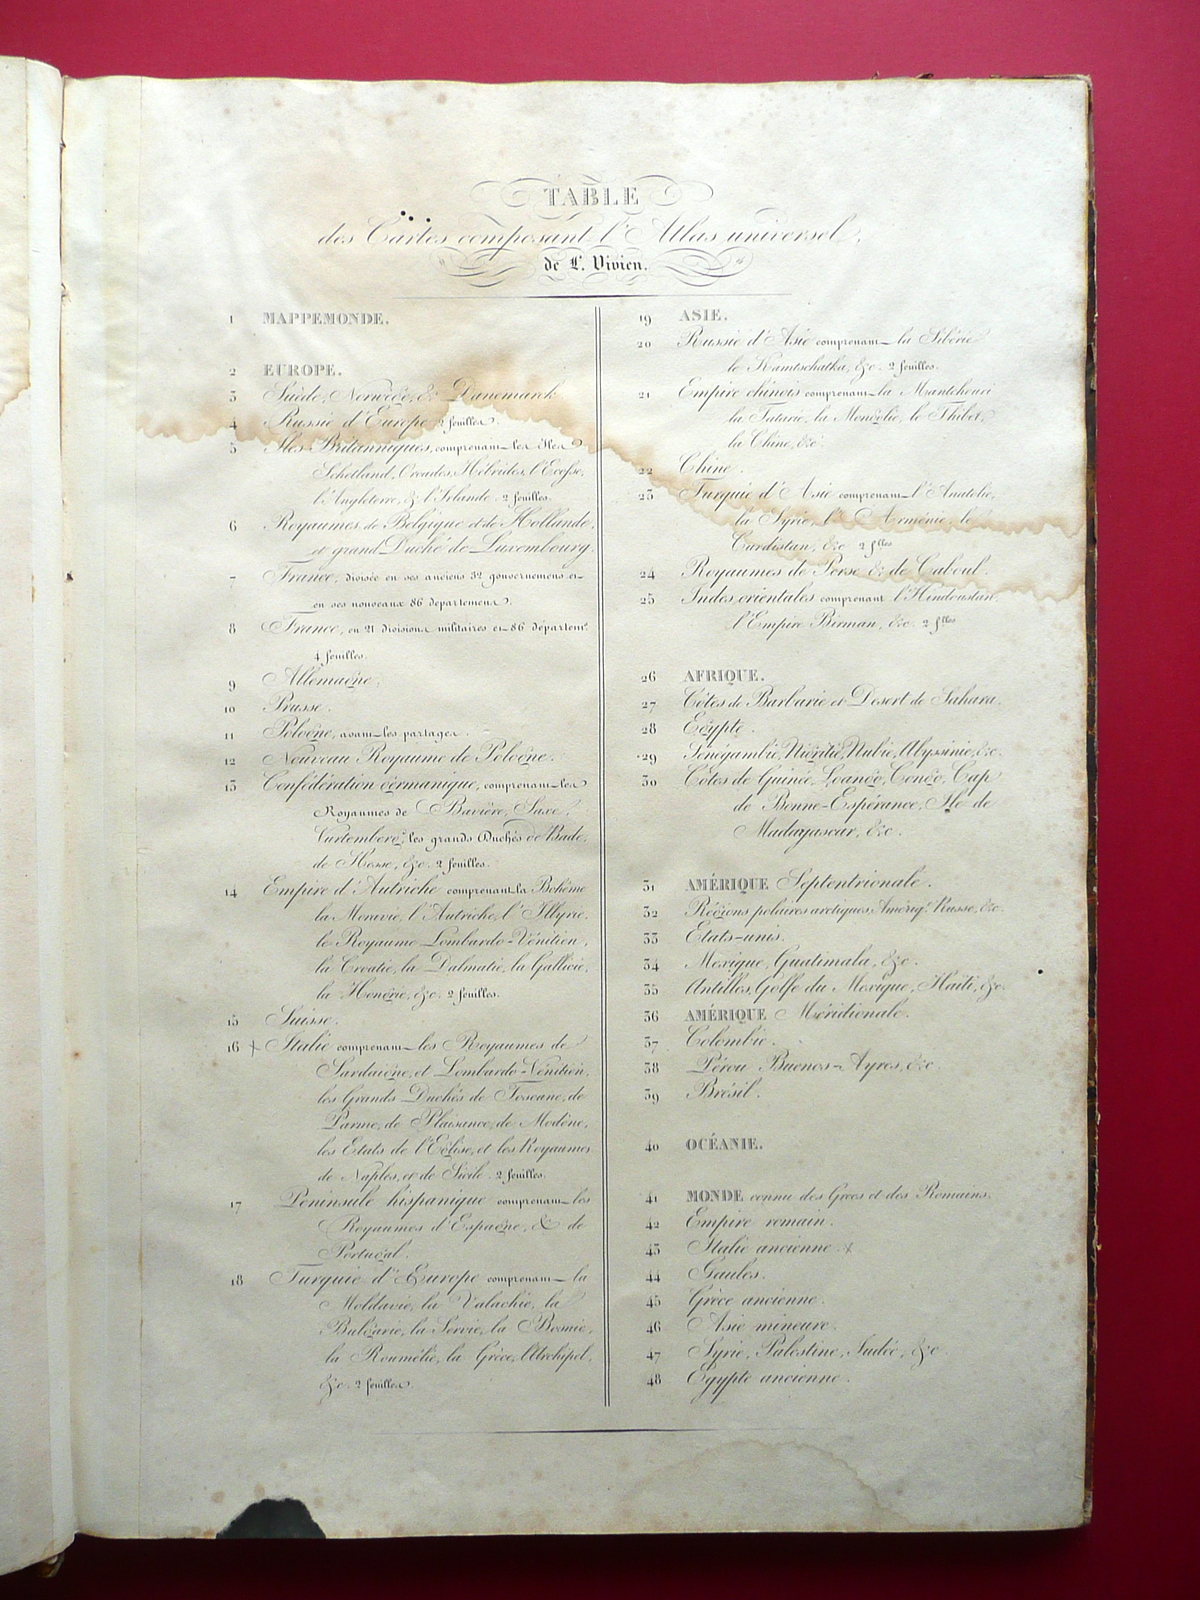 TABLE
des Cartes composant l'Atlas universel,
de L. Vivien.
1 MAPPEMONDE.
2 EUROPE.
3 Suède, Norwège, & Danemarck
4 Russie d'Europe 2 feuilles.
5 Iles Britanniques, comprenant les îles
Schetland, Orcades, Hébrides, l'Ecosse,
l'Angleterre, & l'Irlande. 2 feuilles.
6 Royaumes de Belgique et de Hollande,
et grand Duché de Luxembourg.
7 France, divisée en ses anciens 32 gouvernemens et
en ses nouveaux 86 départemens.
8 France, en 21 divisions militaires et 86 départems.
4 feuilles.
9 Allemagne.
10 Prusse.
11 Pologne, avant les partages.
12 Nouveau Royaume de Pologne.
13 Confédération germanique, comprenant les
Royaumes de Bavière, Saxe,
Vurtemberg, les grands Duchés de Bade,
de Hesse, &c. 2 feuilles.
14 Empire d'Autriche comprenant la Bohême
la Moravie, l'Autriche, l'Illyrie,
le Royaume Lombardo-Vénitien,
la Croatie, la Dalmatie, la Gallicie,
la Hongrie, &c. 2 feuilles.
15 Suisse.
16 Italie comprenant les Royaumes de
Sardaigne, et Lombardo-Vénitien,
les Grands Duchés de Toscane, de
Parme, de Plaisance, de Modène,
les Etats de l'Eglise, et les Royaumes
de Naples, et de Sicile. 2 feuilles.
17 Péninsule hispanique comprenant les
Royaumes d'Espagne, & de
Portugal.
18 Turquie d'Europe comprenant la
Moldavie, la Valachie, la
Bulgarie, la Servie, la Bosnie,
la Roumélie, la Grèce, l'Archipel,
&c. 2 feuilles.
19 ASIE.
20 Russie d'Asie comprenant la Sibérie
le Kamtschatka, &c. 2 feuilles.
21 Empire chinois comprenant la Mantchouri
la Tatarie, la Mongolie, le Thibet,
la Chine, &c.
22 Chine.
23 Turquie d'Asie comprenant l'Anatolie,
la Syrie, l'Arménie, le
Curdistan, &c 2 flles
24 Royaumes de Perse & de Caboul.
25 Indes orientales comprenant l'Hindoustan,
l'Empire Birman, &c. 2 flles
26 AFRIQUE.
27 Côtes de Barbarie et Desert de Sahara.
28 Egypte.
29 Sénégambie, Nigritie, Nubie, Abyssinie, &c.
30 Côtes de Guinée, Loango, Congo, Cap
de Bonne-Espérance, Ile de
Madagascar, &c.
31 AMÉRIQUE Septentrionale.
32 Régions polaires arctiques, Amériq. Russe, &c.
33 Etats-unis.
34 Mexique, Guatimala, &c.
35 Antilles, Golfe du Mexique, Haïti, &c.
36 AMÉRIQUE Méridionale.
37 Colombie.
38 Pérou Buenos-Ayres, &c.
39 Brésil.
40 OCÉANIE.
41 MONDE connu des Grecs et des Romains.
42 Empire romain.
43 Italie ancienne.
44 Gaules.
45 Grèce ancienne.
46 Asie mineure.
47 Syrie, Palestine, Judée, &c.
48 Egypte ancienne.